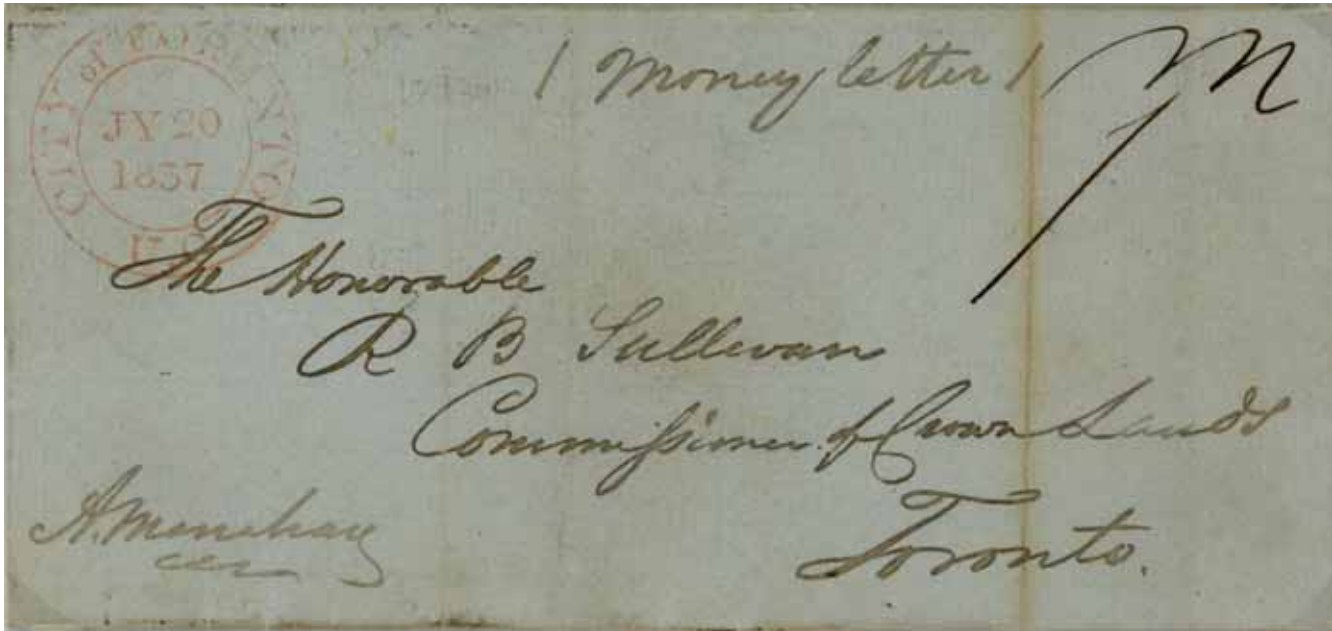 CITY of
JY 20
1837
/ Money letter /
The Honorable
R B Sullivan
Commissioner of Crown Lands
Toronto.